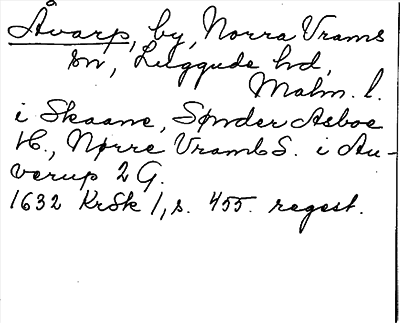 Åvarp, by, Norra Vrams
sn, Luggude hd,
Malm. l.
i Skaane, Sønder Asboe
H., Nørre Vramb S. i Au-
verup 2 G.
1632 KrSk 1, s. 455. regest.